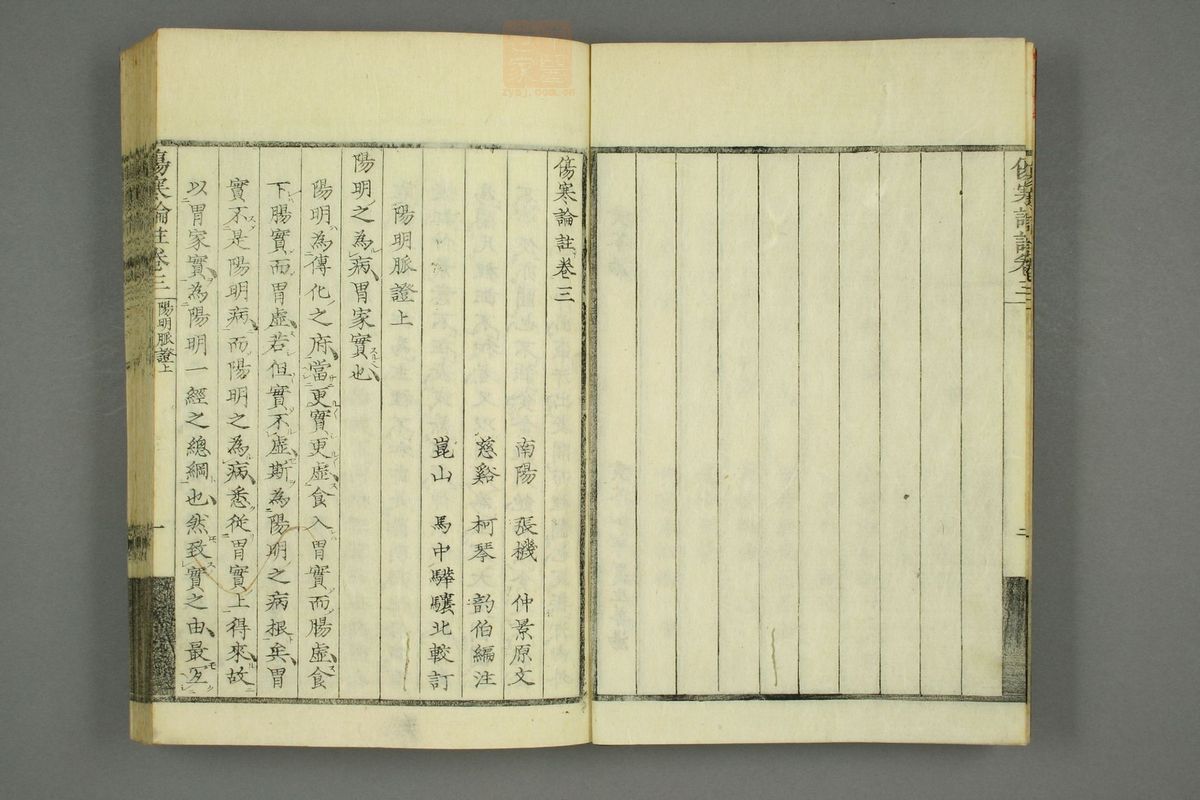 傷寒論註卷三
二
傷寒論註卷三
南陽 張機 仲景原文
慈谿 柯琴 韵伯編注
崑山 馬中驊驤北較訂
陽明脈證上
陽明之為病胃家實也
陽明為傳化之府當更實更虛食入胃實而腸虛食
下腸實而胃虛若但實不虛斯為陽明之病根矣胃
實不是陽明病而陽明之為病悉從胃實上得來故
以胃家實為陽明一經之總綱也然致實之由最宜
傷寒論註卷三 陽明脈證上 一
zysj.com.cn